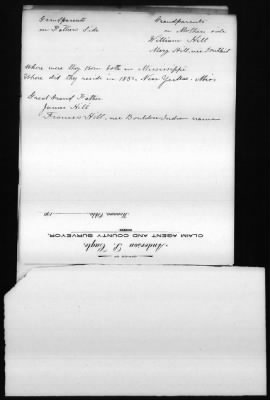 Grandparents
on Fathers side
Grandparents
on Mothers side
William Hill
Mary Hill, nee
Where were they born both in Mississippi
Where did they reside in 1832 New Yerker. Miss.
Great Grand Father
James Hill
Frances Hill, nee Indian name
190
CLAIM AGENT AND COUNTY SURVEYOR,
Anderson S.
OFFICE OF